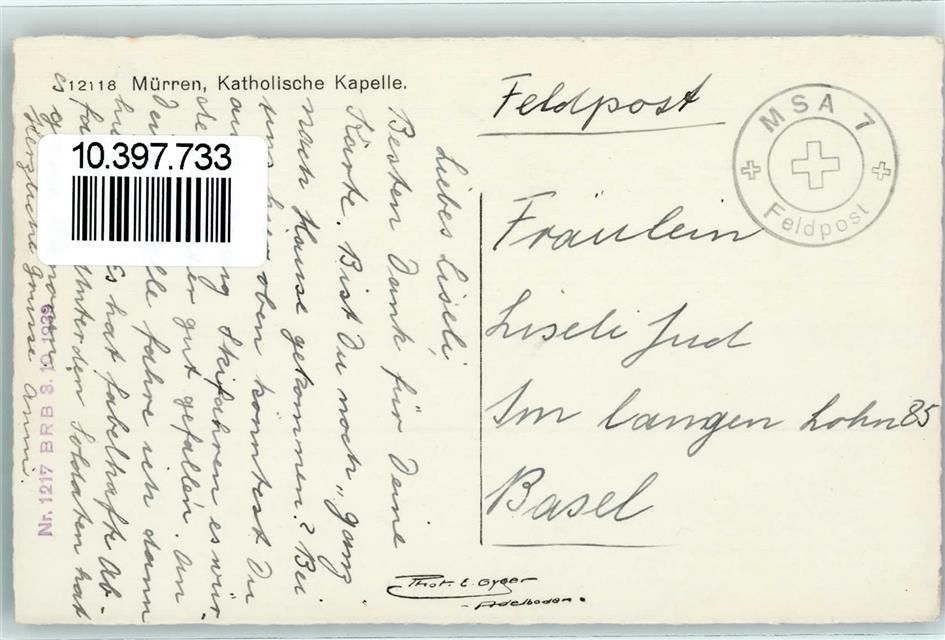 12118 Mürren, Katholische Kapelle.
Feldpost
MSA 7
Feldpost
Fräulein
Liseli Jud
Im langen Lohn 85
Basel
Liebes Liseli,
Besten Dank für Deine
Karte. Bist Du noch „ganz
nach Hause gekommen? Bei
uns hier oben könntest Du
Skifahren es wür
gut gefallen. An
fahre ich dann
Es hat fabelhafte Ab-
Unter den Soldaten hat
es
Herzliche Grüsse Anni.
10.397.733
Nr. 1217 BRB 3.10.1939
Phot. E. Gyger
- Adelboden.